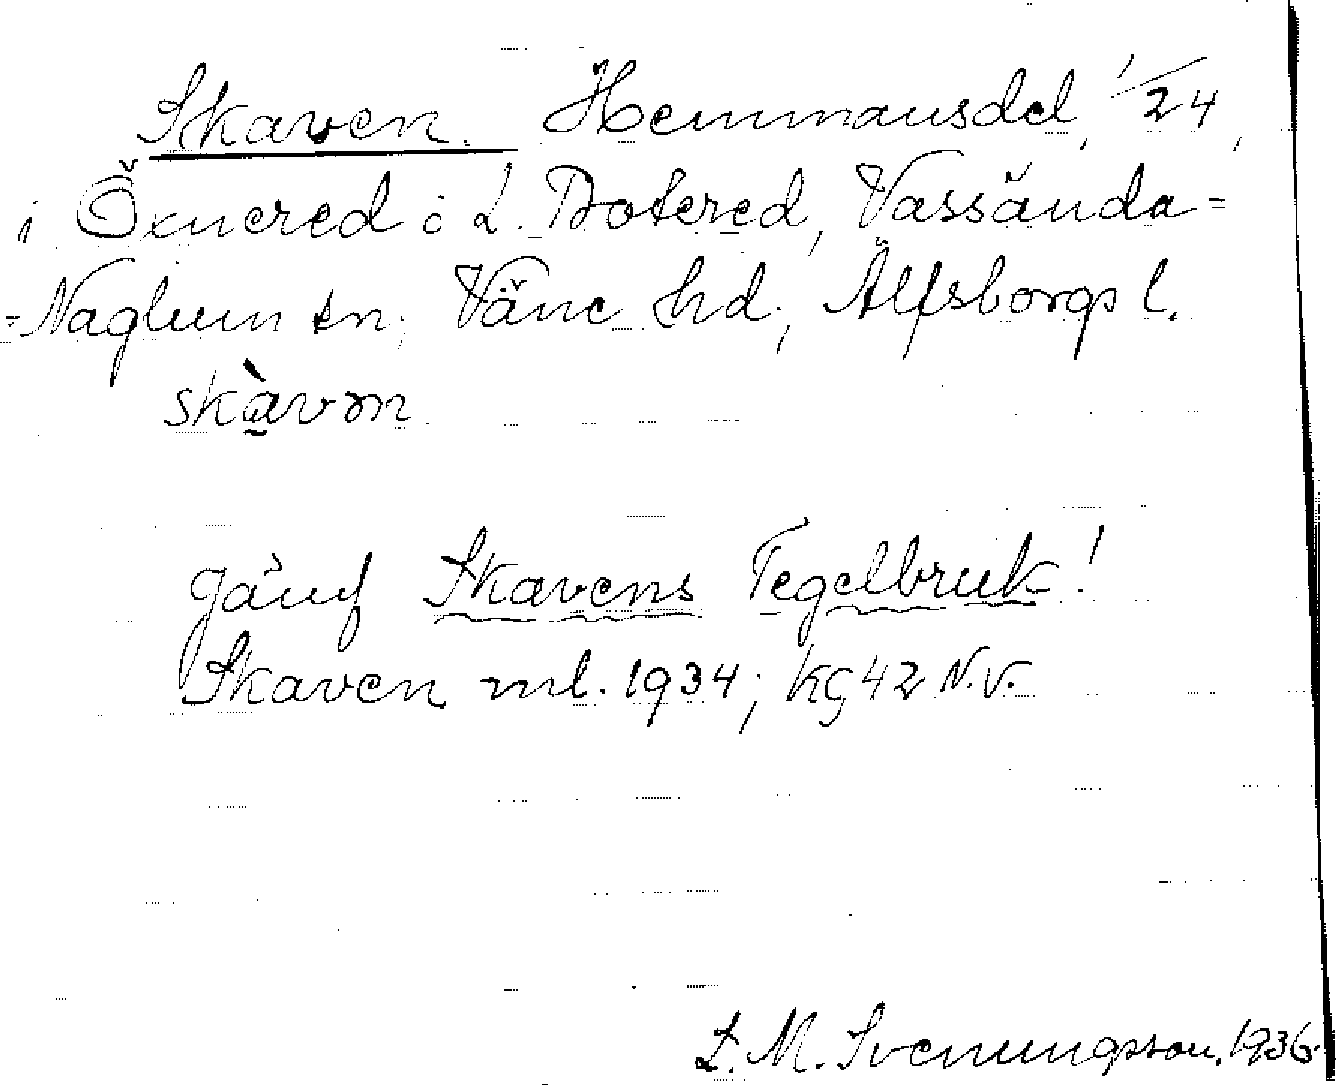 Skaven. Hemmansdel, 1/24,
i Öxnered i L. Botered, Vassända-
-Naglum sn, Väne hd, Älfsborgs l.
skàvən
jämf Skavens Tegelbruk!
Skaven ml. 1934; kg 42 N.V.
L. M. Svenungsson, 1936.